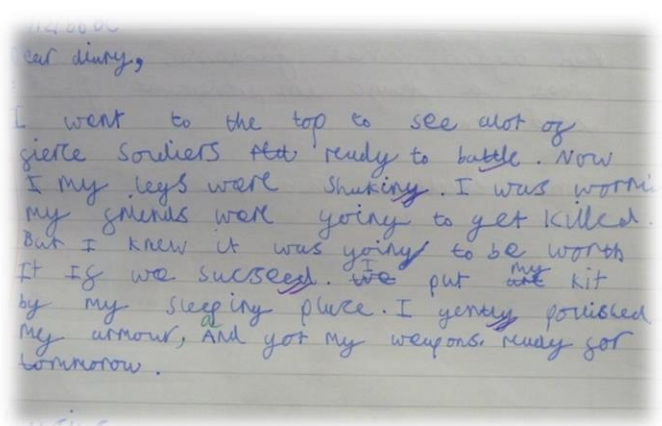 Dear diary,
I went to the top to see alot of
fierce Souldiers ready to battle. Now
I my legs were shaking. I was worri
my friends were going to get killed.
But I knew it was going to be worth
It If we sucseed. I put my kit
by my sleeping place. I gently polished
my armour, and got my weapons. ready for
tommorow.